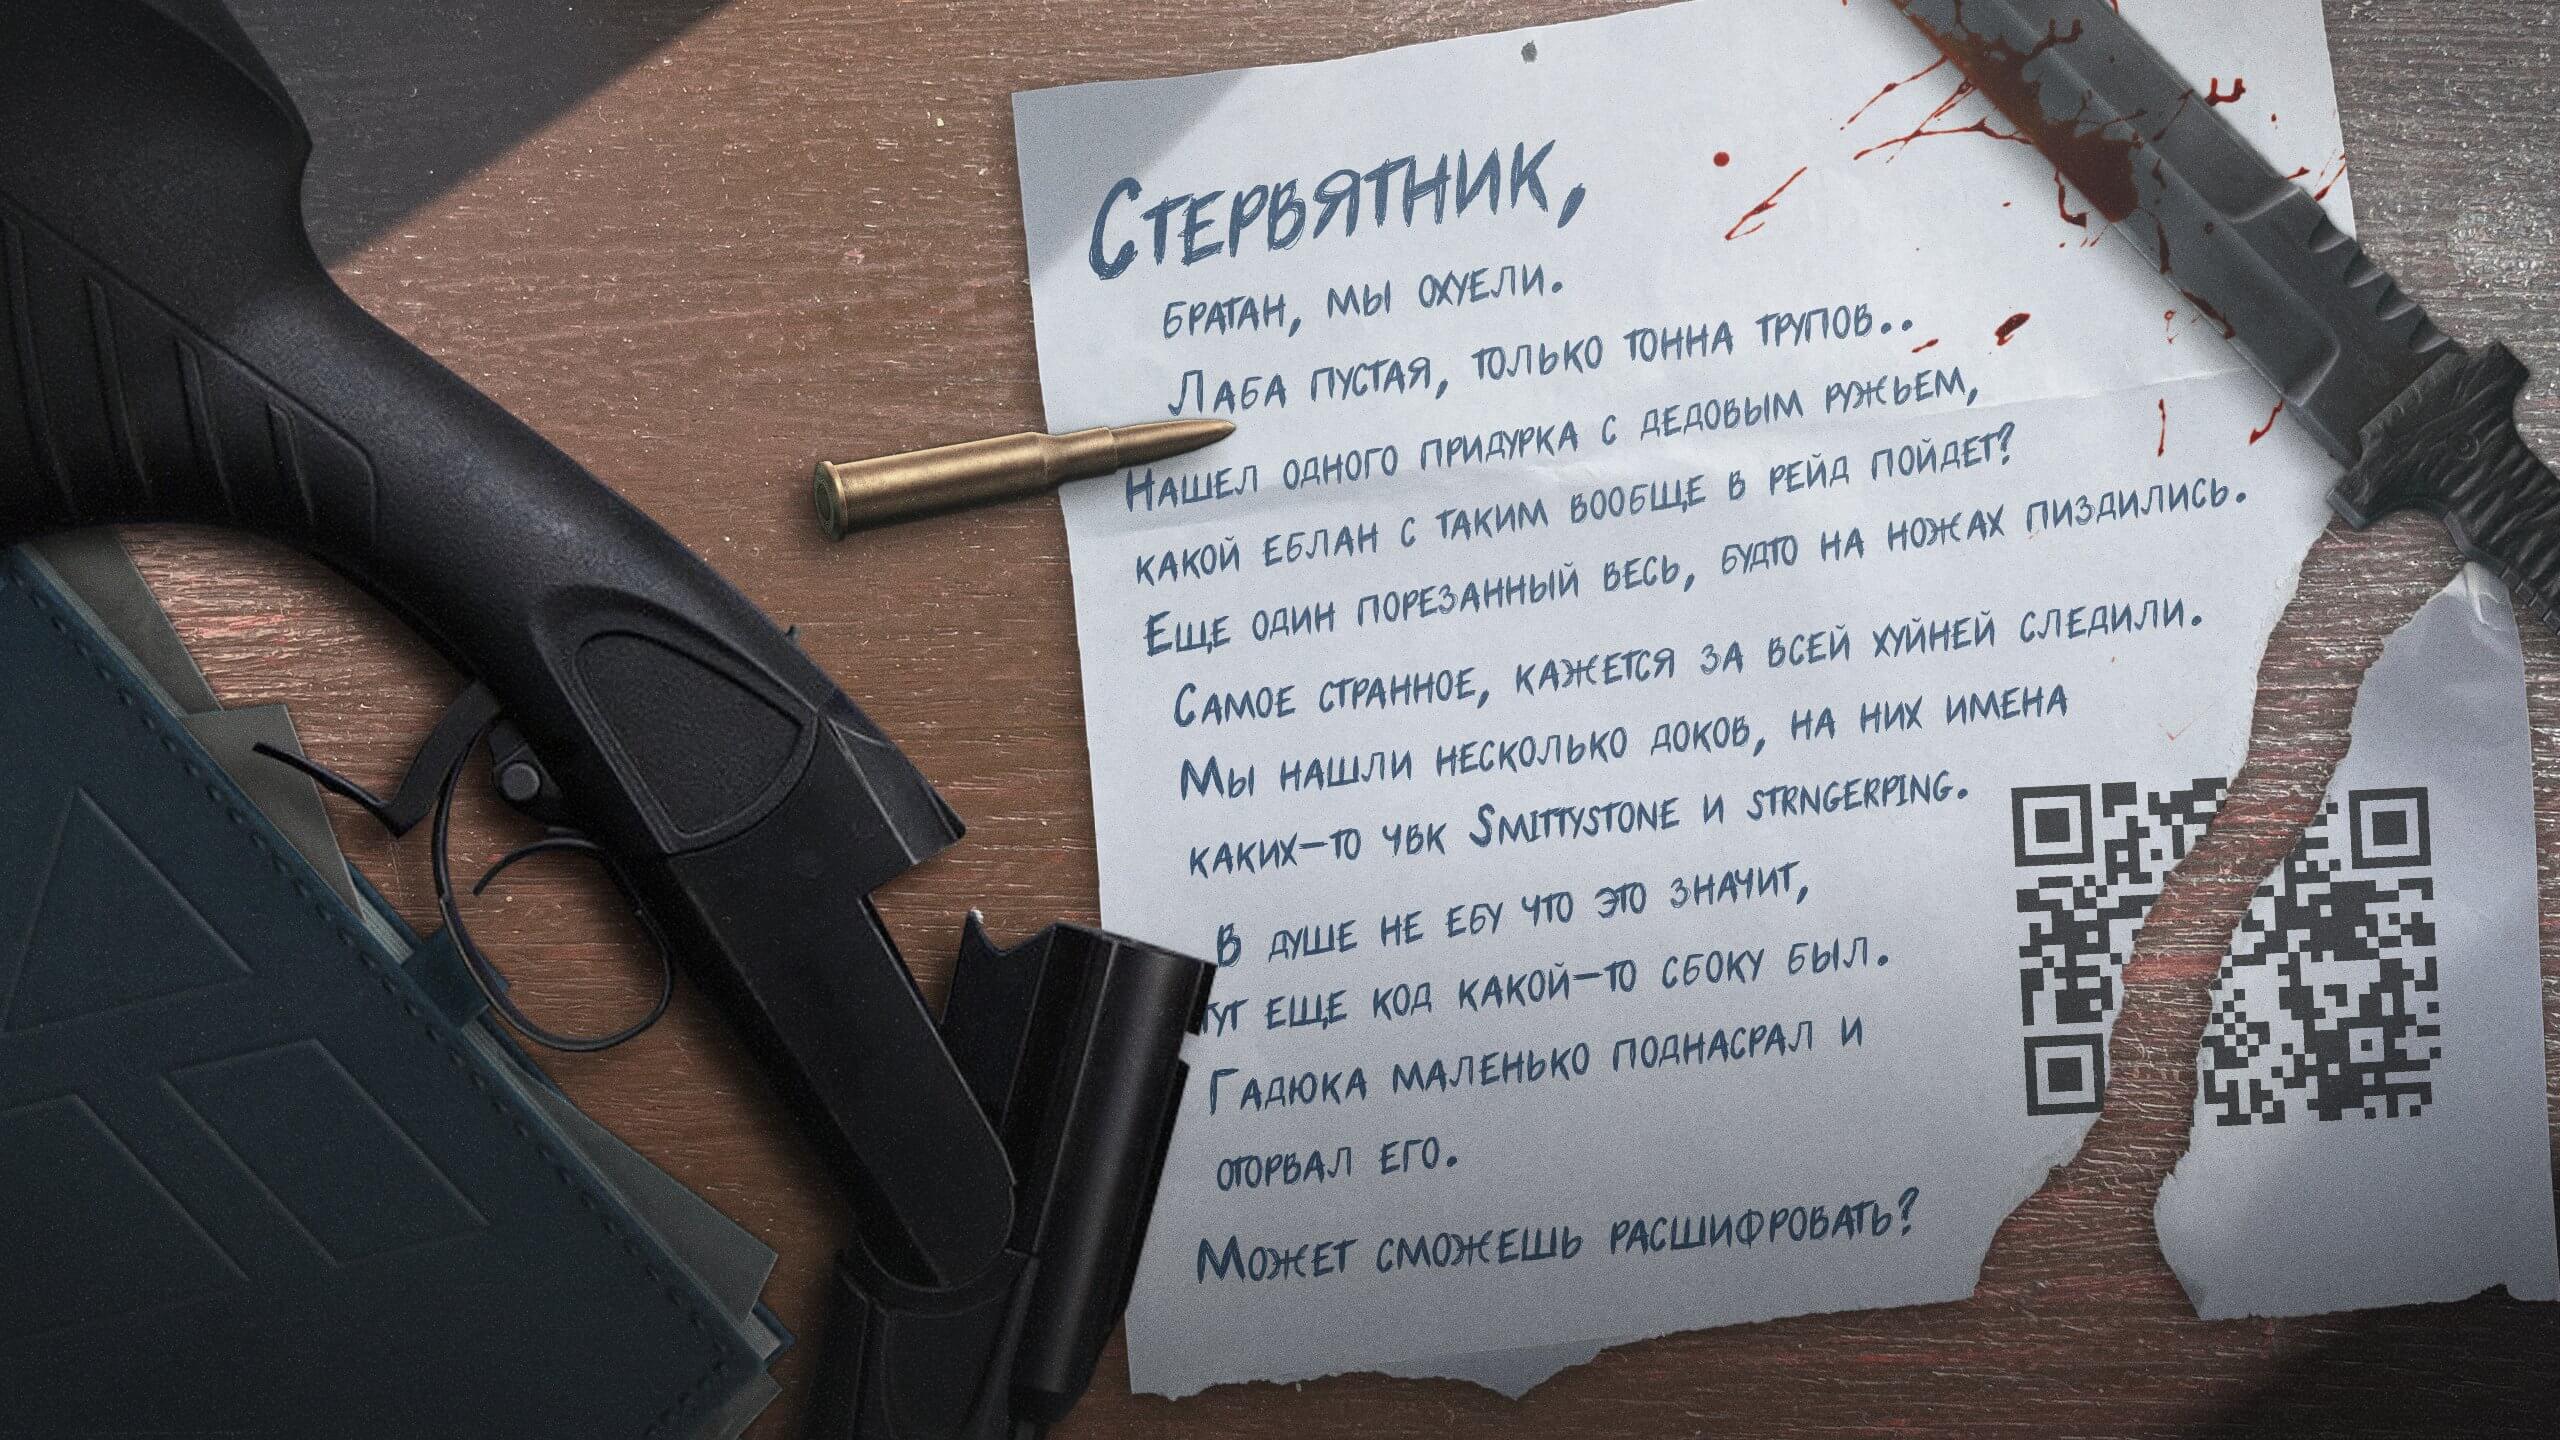 Стервятник,
братан, мы охуели.
Лаба пустая, только тонна трупов..
Нашел одного придурка с дедовым ружьем,
какой еблан с таким вообще в рейд пойдет?
Еще один порезанный весь, будто на ножах пиздились.
Самое странное, кажется за всей хуйней следили.
Мы нашли несколько доков, на них имена
каких-то чвк Smittystone и strngerping.
В душе не ебу что это значит,
тут еще код какой-то сбоку был.
Гадюка маленько поднасрал и
оторвал его.
Может сможешь расшифровать?